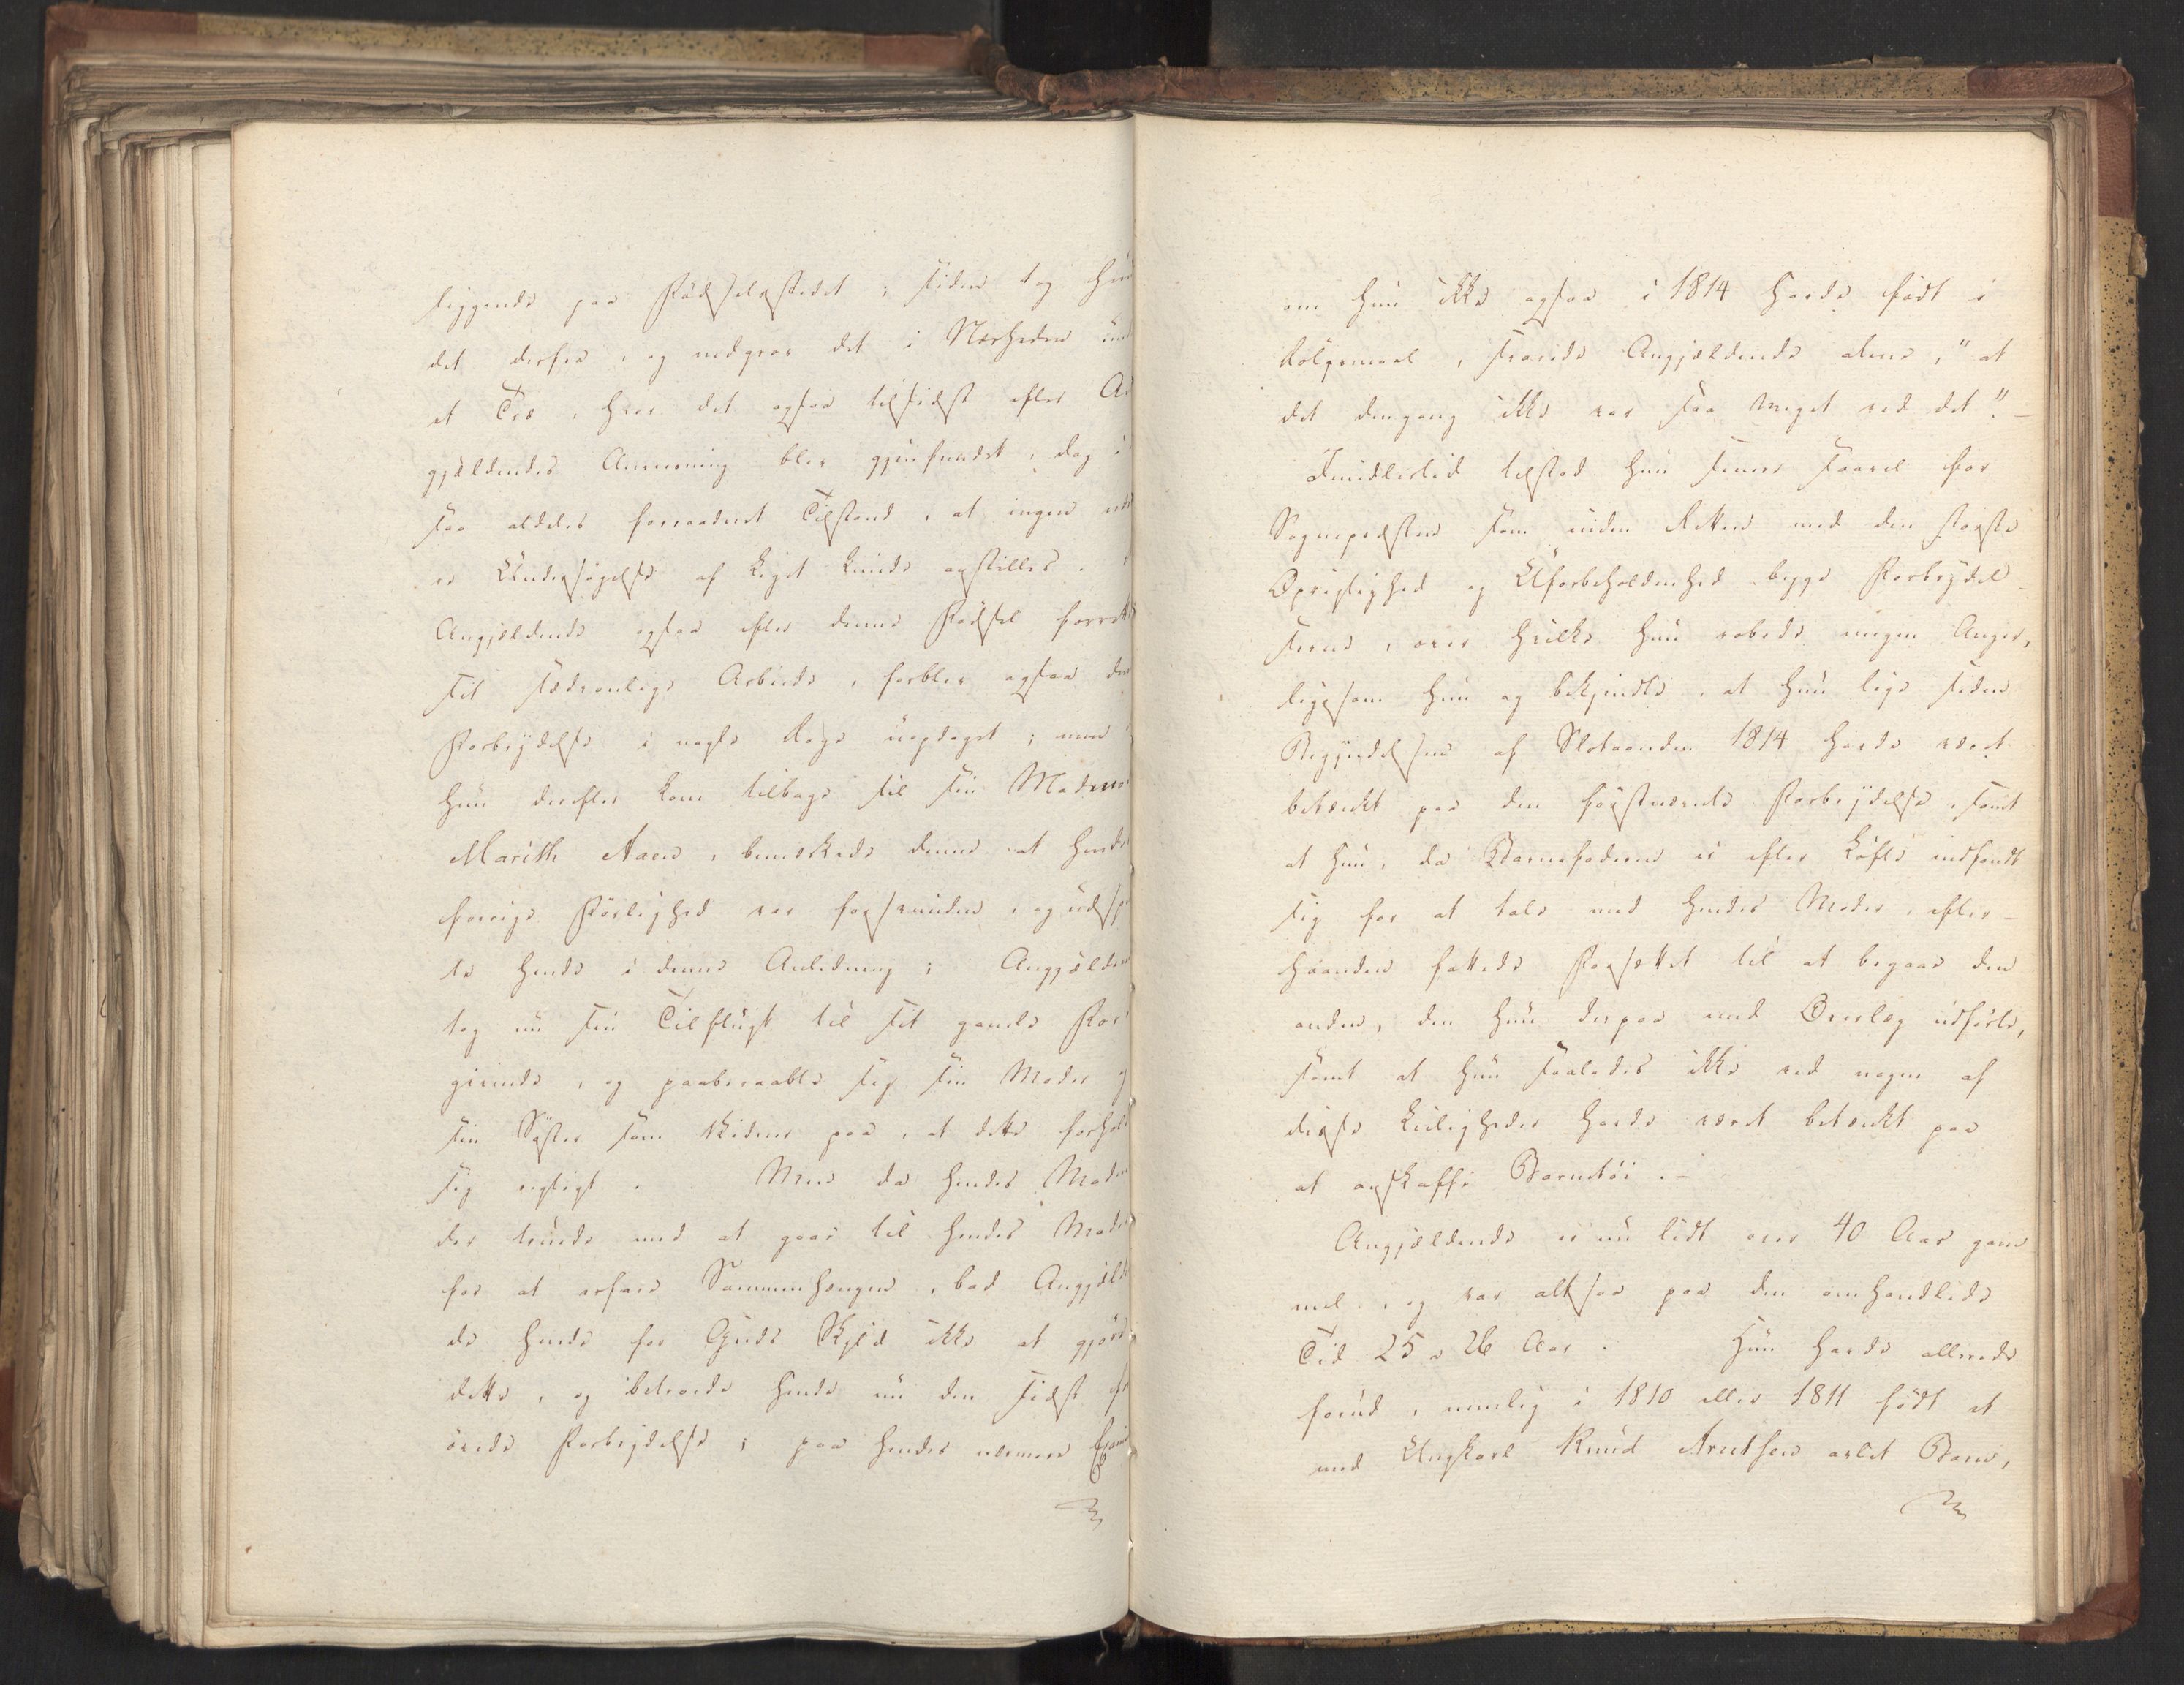 liggende paa Födselsstedet; siden tog hun
det derfra, og nedgrov det i Nærheden un
et Træ, hvor det ogsaa tilsidst efter An
gjældendes Anvisning blev gjenfundet, dog i
saa aldeles forraadnet Tilstand, at ingen
Undersøgelse af Liget kunde anstilles.
Angjældende ogsaa efter denne Födsel forret
sit sædvanlige Arbeide, forblev ogsaa den
Forbrydelse i nogle Dage uopdaget; men
hun derefter kom tilbage til sin Madmo
Marith Aaen, bemærkede denne at hendes
forrige Förlighed var forsvunden, og udsp
te hende i denne Anledning; Angjælden
tog nu sin Tilflugt til sit gamle For
givende, og paaberaabte sig sin Moder og
sin Søster som Vidner paa, at dette forholdt
sig rigtigt. Men da hendes Mad
der truede med at gaae til hendes Moder
for at erfare Sammenhængen, bad Angjælden
de hende for Guds Skyld ikke at gjöre
dette, og betroede hende nu den sidst
övede Forbrydelse; paa hendes nærmere
om hun ikke ogsaa i 1814 havde födt i
Dölgsmaal, svarede Angjældende alene, "at
det dengang ikke var saa meget ved det". –
Imidlertid tilstod hun senere saavel for
Sognepræsten som inden Retten med den største
Oprigtighed og Uforbeholdenhed begge Forbrydel-
serne, over hvilke hun robede megen Anger,
ligesom hun og bekjendte, at hun lige siden
Begyndelsen af Slotaanden 1814 havde været
betænkt paa den førstnævnte Forbrydelse, samt
at hun, da Barnefaderen ei efter Löfte indfandt
sig for at tale med hendes Moder, efter-
haanden fattede Forsættet til at begaae den
anden, den hun derpaa med Overlæg udførte,
samt at hun saaledes ikke ved nogen af
disse Leiligheder havde været betænkt paa
at anskaffe Barnetöi. –
Angjældende er nu lidt over 40 Aar gam
mel, og var altsaa paa den omhandlede
Tid 25 a 26 Aar. Hun havde allerede
forud, nemlig i 1810 eller 1811 födt et
med Ungkarl Knud Arntsen avlet Barn,